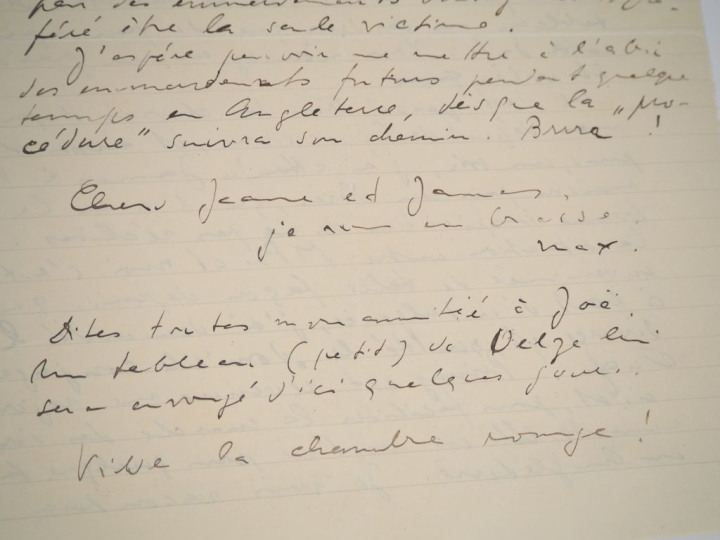 par des emmerdements
féré être la seule victime.
J'espère pouvoir me mettre à l'abri
des emmerdements futurs pendant quelque
temps en Angleterre, dès que la „pro-
cédure" suivra son chemin. Brrrr !
Chers Jeanne et James,
je vous embrasse
max.
Dites toutes mon amitié à Joë.
Un tableau (petit) de Velze lui
sera envoyé d'ici quelques jours.
Vive la chambre rouge !